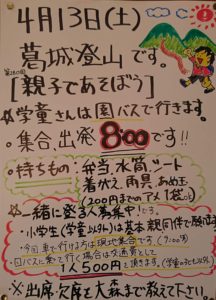 4月13日(土)
葛城登山です。
第280回
[親子であそぼう]
☆学童さんは園バスで行きます。
○集合、出発 8:00です!!
○持ちもの:弁当、水筒、シート
着がえ、雨具、あめ玉
(200円までのアメ1袋。)
☆一緒に登る人募集中です。
○小学生(学童以外)は基本親同伴で願います
・今回車で行ける方は現地集合です。(9:00頃)
・園バスに乗って行く場合は交通費として
1人500円を頂きます。(学童の方も)
※出席・欠席を大森まで教えて下さい